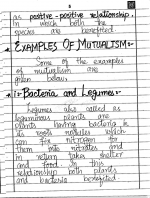 as positive-positive relationship.
in which both the
species are benefited
→ EXAMPLES OF MUTUALISM:-
Some of the examples
of mutualism are
given below:
i:- Bacteria and Legumes:-
Legumes also called as
leguminous plants are
plants having bacteria in
its roots nodules which
can fix nitrogen for
them into nitrates and
in return takes shelter
and food. In this
relationship both plants
and bacteria benefited